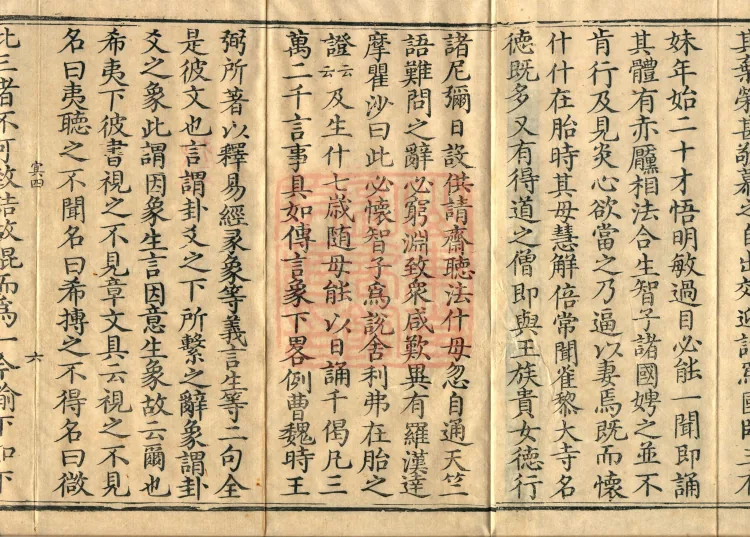 其棄榮甚敬慕之自出郊迎請爲國師王
妹年始二十才悟明敏過目必能一聞即誦
其體有赤黶相法合生智子諸國娉之並不
肯行及見炎心欲當之乃逼以妻焉既而懷
什什在胎時其母慧解倍常聞雀黎大寺名
德既多又有得道之僧即與王族貴女德行
諸尼彌日設供請齋聽法什母忽自通天竺
語難問之辭必窮淵致衆咸歎異有羅漢達
摩瞿沙曰此必懷智子爲說舍利弗在胎之
證云云及生什七歲隨母能以日誦千偈凡三
萬二千言事具如傳言象下畧例曹魏時王
弼所著以釋易經彖象等義言生等二句全
是彼文也言謂卦爻之下所繫之辭象謂卦
爻之象此謂因象生言因意生象故云爾也
希夷下彼書視之不見章文具云視之不見
名曰夷聽之不聞名曰希搏之不得名曰微
㝠四 六
此三者不可致詰故混而爲一今喻下如下